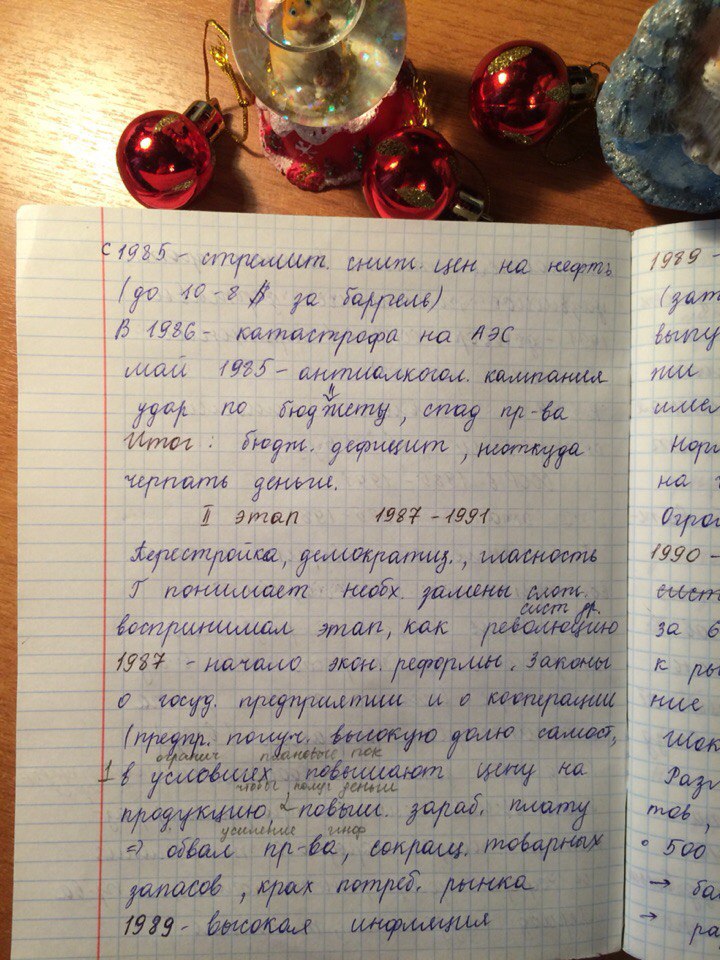 с 1985 - стремит. сниж. цен на нефть
(до 10-8 $ за баррель)
В 1986 - катастрофа на АЭС
май 1985 - антиалкогол. кампания
удар по бюджету, спад пр-ва
Итог: бюдж. дефицит, неоткуда
черпать деньги.
II этап 1987-1991
Перестройка, демократиз., гласность
Г понимает необх. замены слож.
сист др.
воспринимал этап, как революцию
1987 - начало экон. реформы. Законы
о госуд. предприятии и о кооперации
(предпр. получ. высокую долю самост,
огранич плановые пок
1 в условиях повышают цену на
чтобы получ деньги
продукцию, повыш. зараб. плату
усиление инф
=> обвал пр-ва, сокращ. товарных
запасов, крах потреб. рынка
1989 - высокая инфляция
1989 -
(зат
выпу
ти
имел
Норм
на
Огро
1990 -
сист
за 6
к ры
ние
Шок
Разг
тов,
• 500
→ бал
→ ра